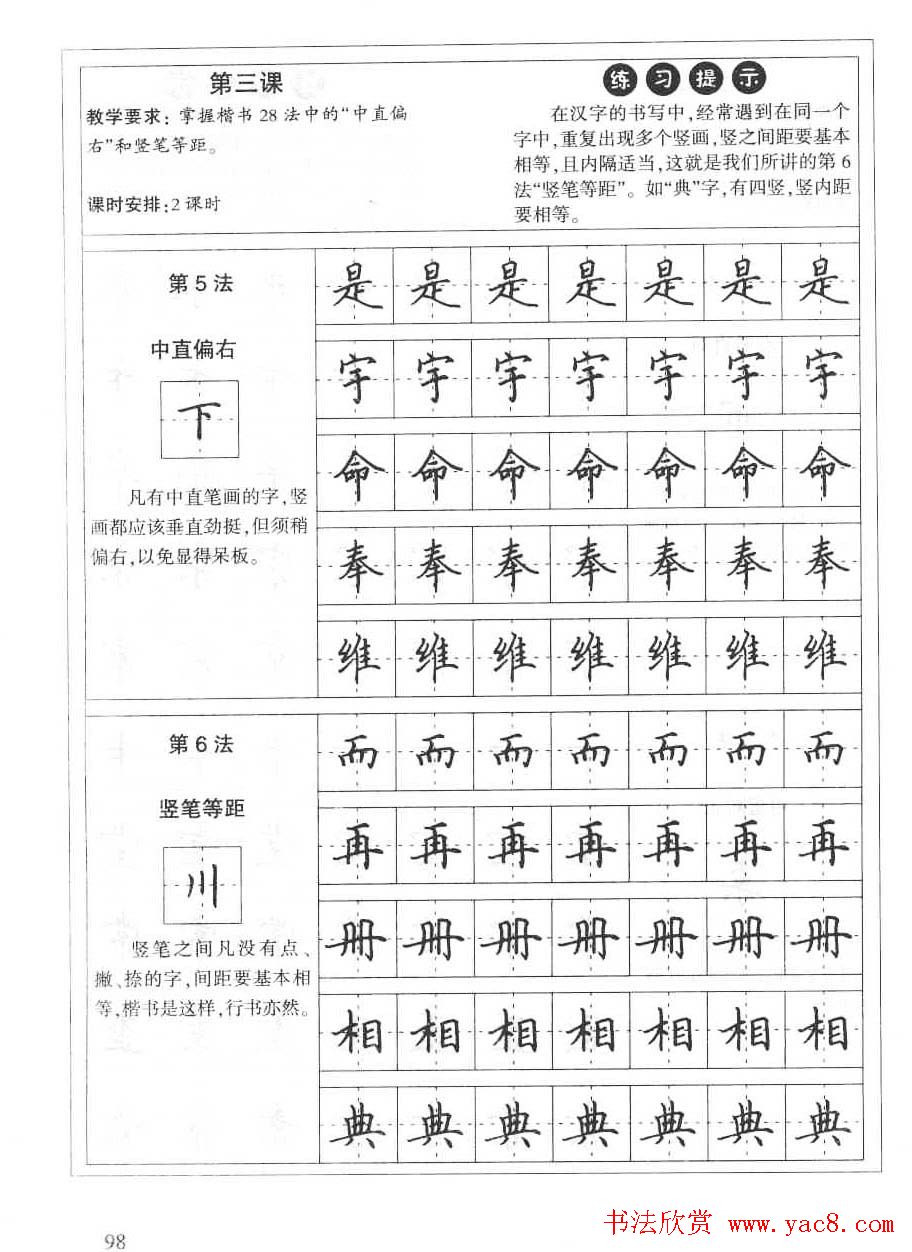 第三课
教学要求：掌握楷书28法中的“中直偏
右”和竖笔等距。
课时安排：2课时
练习提示
在汉字的书写中，经常遇到在同一个
字中，重复出现多个竖画，竖之间距要基本
相等，且内隔适当，这就是我们所讲的第6
法“竖笔等距”。如“典”字，有四竖，竖内距
要相等。
第5法
中直偏右
下
凡有中直笔画的字，竖
画都应该垂直劲挺，但须稍
偏右，以免显得呆板。
是是是是是是是
宇宇宇宇宇宇宇
命命命命命命命
奉奉奉奉奉奉奉
维维维维维维维
第6法
竖笔等距
川
竖笔之间凡没有点、
撇、捺的字，间距要基本相
等，楷书是这样，行书亦然。
而而而而而而而
再再再再再再再
册册册册册册册
相相相相相相相
典典典典典典典
98
书法欣赏 www.yac8.com